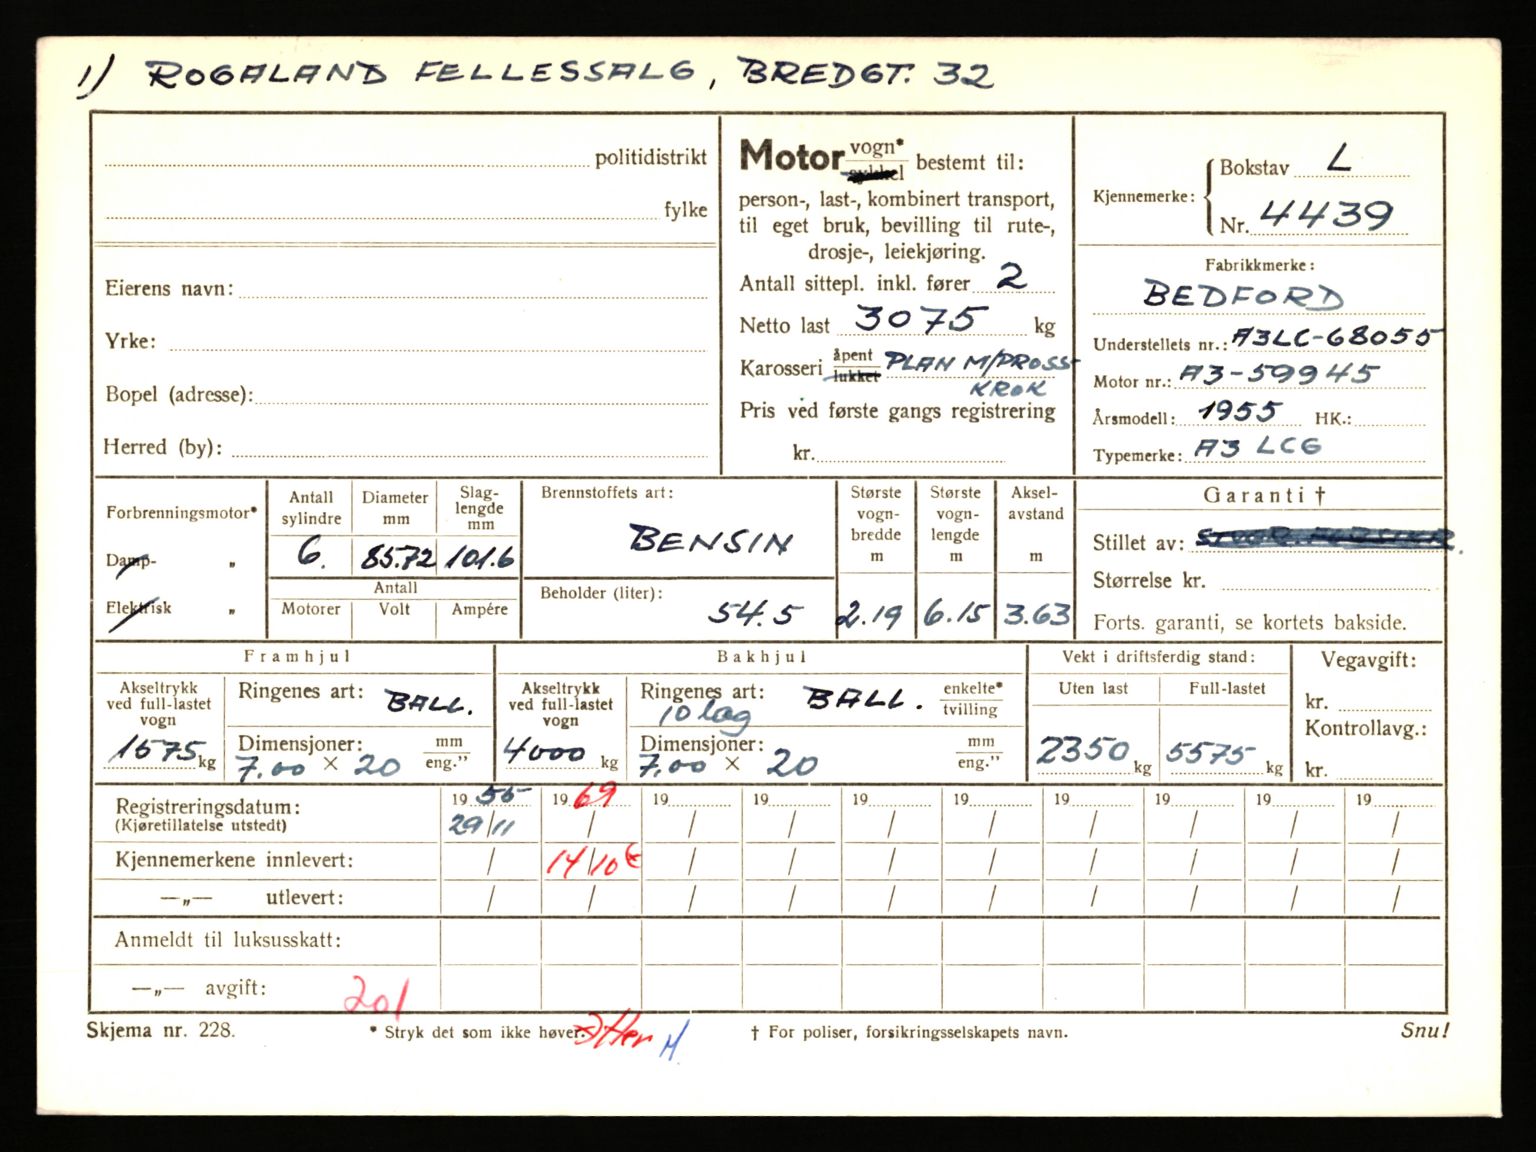 1) ROGALAND FELLESSALG, BREDGT. 32
politidistrikt
fylke
Eierens navn:
Yrke:
Bopel (adresse):
Herred (by):
Motor vogn*
bestemt til:
person-, last-, kombinert transport,
til eget bruk, bevilling til rute-,
drosje-, leiekjøring.
Antall sittepl. inkl. fører 2
Netto last 3075 kg
Karosseri åpent lukket PLAN M/PROSS-
KROK
Pris ved første gangs registrering
kr.
Kjennemerke: Bokstav L
Nr. 4439
Fabrikkmerke:
BEDFORD
Understellets nr.: A3LC-68055
Motor nr.: A3-59945
Årsmodell: 1955 HK.:
Typemerke: A3 LCG
Forbrenningsmotor*
Damp- „
Elektrisk „
Antall sylindre 6.
Diameter mm 85.72
Slag-lengde mm 101.6
Antall
Motorer Volt Ampére
Brennstoffets art:
BENSIN
Beholder (liter):
54.5
Største vogn-bredde m 2.19
Største vogn-lengde m 6.15
Aksel-avstand m 3.63
Garanti †
Stillet av:
Størrelse kr.
Forts. garanti, se kortets bakside.
Framhjul
Akseltrykk ved full-lastet vogn 1575 kg
Ringenes art: BALL.
Dimensjoner: mm eng.”
7.00 × 20
Bakhjul
Akseltrykk ved full-lastet vogn 4000 kg
Ringenes art: BALL. enkelte* tvilling
10 lag
Dimensjoner: mm eng.”
7.00 × 20
Vekt i driftsferdig stand:
Uten last Full-lastet
2350 kg 5575 kg
Vegavgift:
kr.
Kontrollavg.:
kr.
Registreringsdatum: 19 55 19 69 19 19 19 19 19 19 19 19
(Kjøretillatelse utstedt) 29/11 / / / / / / / / /
Kjennemerkene innlevert: / 14/10 / / / / / / / /
—„— utlevert: / / / / / / / / / /
Anmeldt til luksusskatt:
—„— avgift: 201
Skjema nr. 228. * Stryk det som ikke høver. † For poliser, forsikringsselskapets navn. Snu!